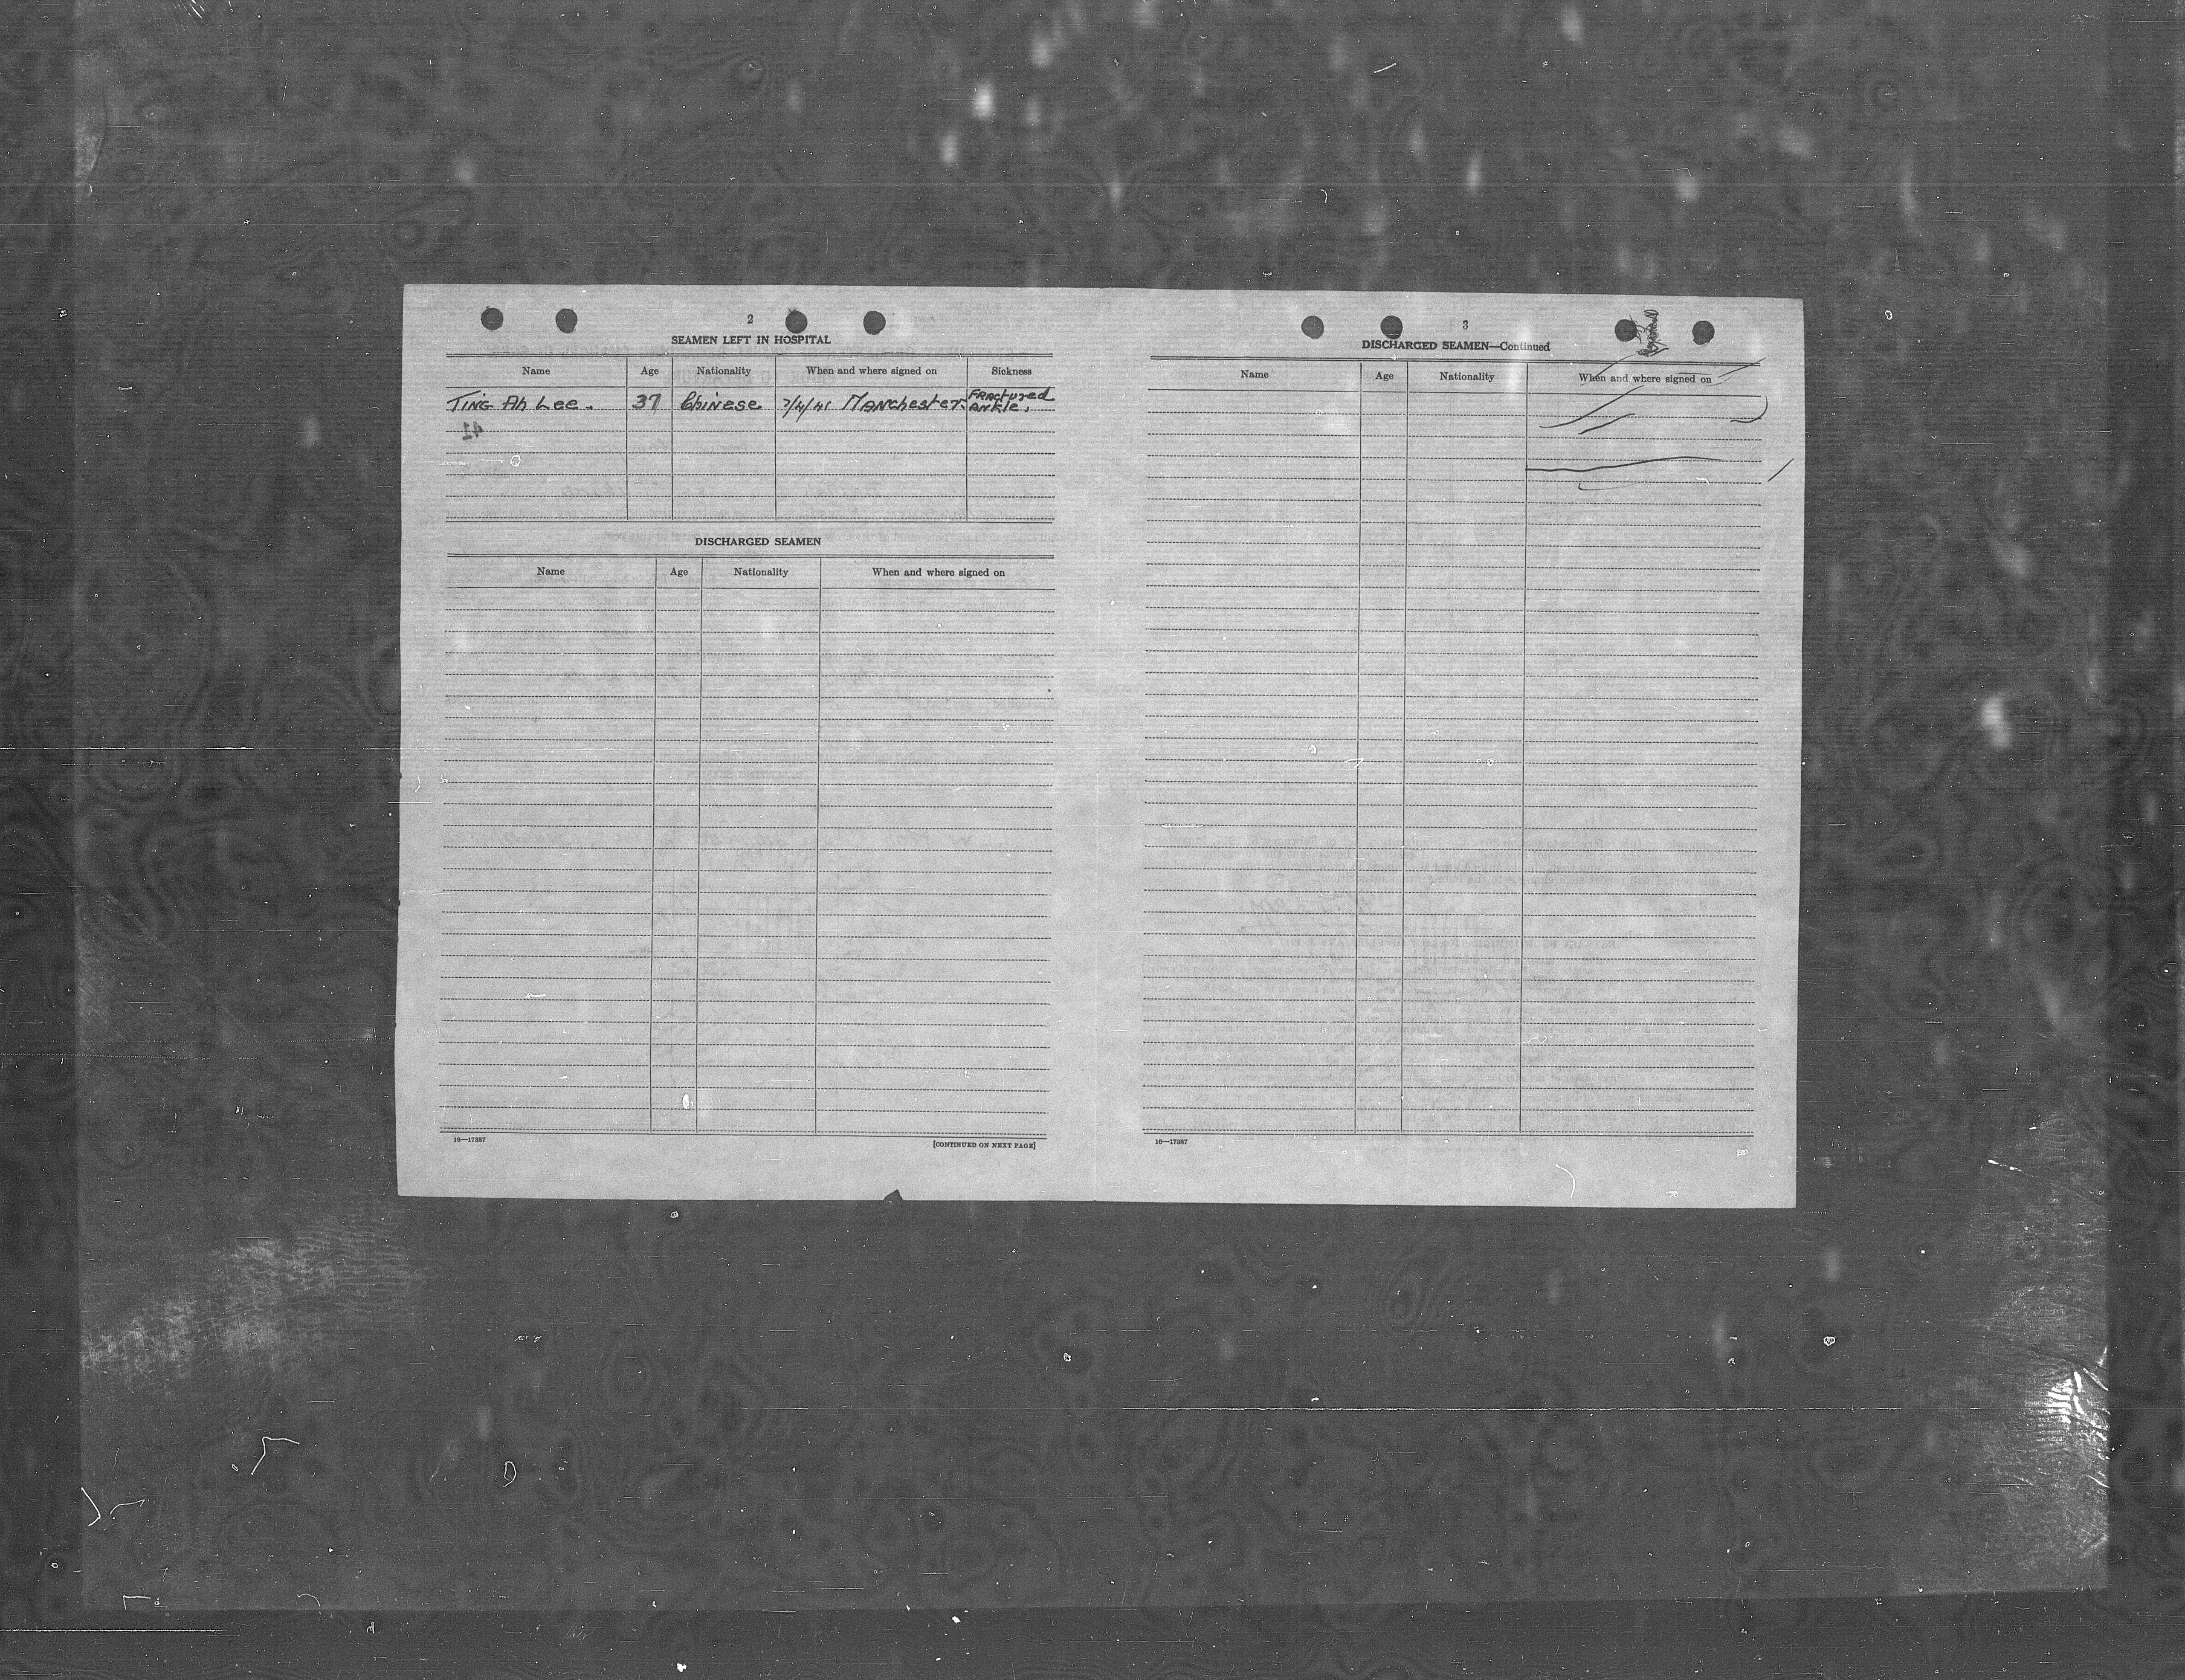 2
SEAMEN LEFT IN HOSPITAL
Name Age Nationality When and where signed on Sickness
Ting Ah Lee. 37 Chinese 7/4/41 Manchester. Fractured
Ankle.
41
DISCHARGED SEAMEN
Name Age Nationality When and where signed on
16—17387 [CONTINUED ON NEXT PAGE]
3
DISCHARGED SEAMEN—Continued
Name Age Nationality When and where signed on
16—17387